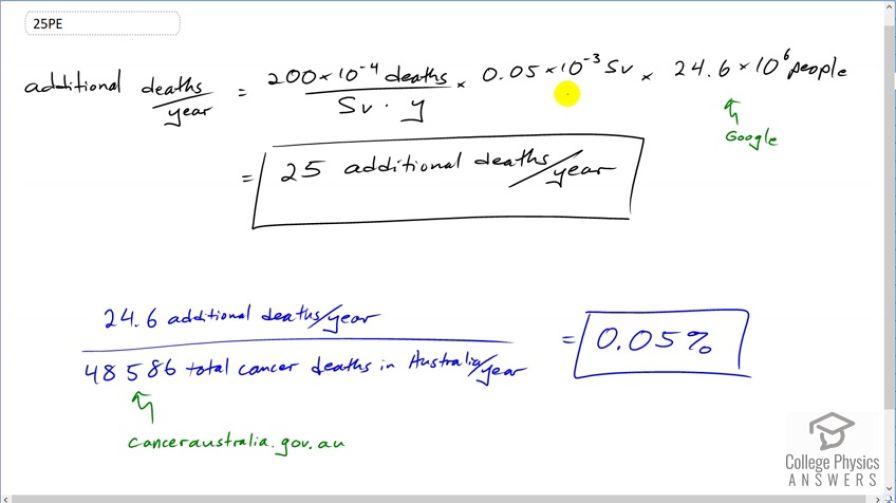 25PE
additional deaths/year = 200×10⁻⁴ deaths/Sv·y × 0.05×10⁻³ Sv × 24.6×10⁶ people
Google
= 25 additional deaths/year
24.6 additional deaths/year
48586 total cancer deaths in Australia/year
= 0.05%
canceraustralia.gov.au
College Physics
ANSWERS